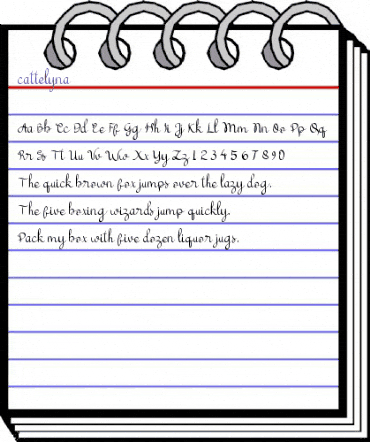 cattelyna
Aa Bb Cc Dd Ee Ff Gg Hh Ii Jj Kk Ll Mm Nn Oo Pp Qq
Rr Ss Tt Uu Vv Ww Xx Yy Zz 1 2 3 4 5 6 7 8 9 0
The quick brown fox jumps over the lazy dog.
The five boxing wizards jump quickly.
Pack my box with five dozen liquor jugs.